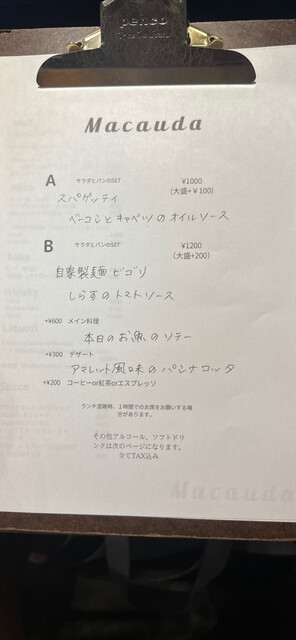 penco
Macauda
A サラダとパンのSET ¥1000
(大盛+￥100)
スパゲッティ
ベーコンとキャベツのオイルソース
B サラダとパンのSET ¥1200
(大盛+200)
自家製麺 ビゴリ
しらすのトマトソース
+¥600 メイン料理
本日のお魚のソテー
+¥300 デザート
アマレット風味のパンナコッタ
+¥200 コーヒーor紅茶orエスプレッソ
ランチ混雑時、１時間でのお席をお願いする場
合があります。
その他アルコール、ソフトドリ
ンクは次のページになります。
全てTAX込み
Macauda